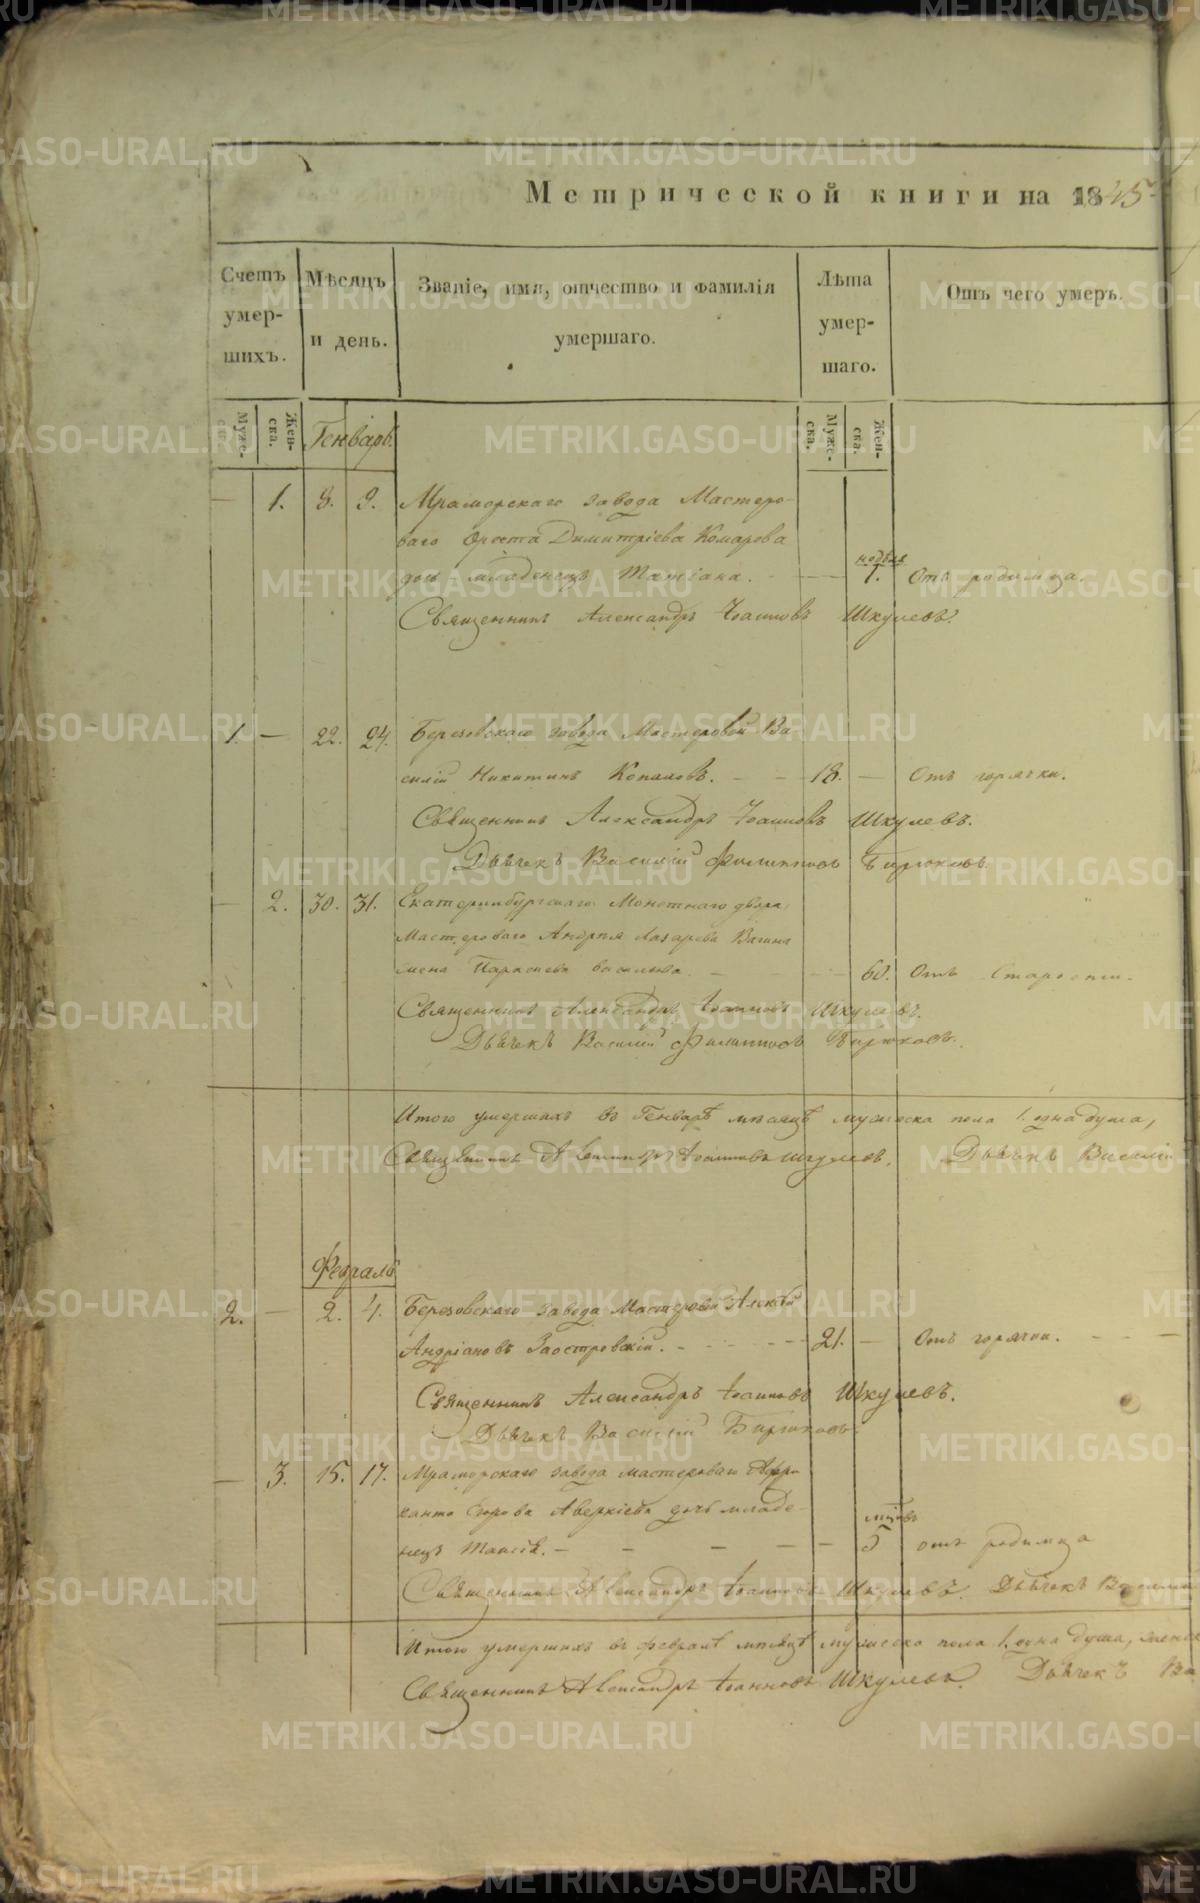 Метрической книги на 1845
Счетъ умер-шихъ.
Мѣсяцъ и день.
Званіе, имя, отчество и фамилія умершаго.
Лѣта умер-шаго.
Отъ чего умеръ.
Муже-ска.
Жен-ска.
Генварь.
Муже-ска.
Жен-ска.
— 1. 8. 9. Мраморскаго завода Мастеро-
ваго Ореста Димитріева Комарова
недѣля
дочь младенецъ Татіана. — 1. Отъ родимца.
Священникъ Александръ Іоанновъ Шкулевъ.
1. — 22. 24. Березовскаго завода Мастеровой Ва-
силій Никитинъ — — 18. — Отъ горячки.
Священникъ Александръ Іоанновъ Шкулевъ.
Дьячекъ Василій Филипповъ Бирюковъ
— 2. 30. 31. Екатеринбургскаго Монетнаго двора
Мастероваго Андрея Лазарева Вагина
жена Параскева — — 60. Отъ Старости.
Священникъ Александръ Іоанновъ Шкулевъ.
Дьячекъ Василій Филипповъ Бирюковъ.
Итого умершихъ въ Генварѣ мѣсяцѣ мужеска пола 1. одна душа,
Священникъ Александръ Іоанновъ Шкулевъ. Дьячекъ Василій
Февраль
2. — 2. 4. Березовскаго завода Мастеровой Алексѣй
Андріановъ Заостровскій. — — — 21. — Отъ горячки. — — —
Священникъ Александръ Іоанновъ Шкулевъ.
Дьячекъ Василій Бирюковъ.
— 3. 15. 17. Мраморскаго завода мастероваго
Аверкіева дочь младе-
нецъ Таисія. — — — — — 5 отъ родимца
Священникъ Александръ Іоанновъ Шкулевъ. Дьячекъ Василій
Итого умершихъ въ февралѣ мѣсяцѣ мужеска пола 1. одна душа, женск
Священникъ Александръ Іоанновъ Шкулевъ. Дьячекъ Ва
METRIKI.GASO-URAL.RU